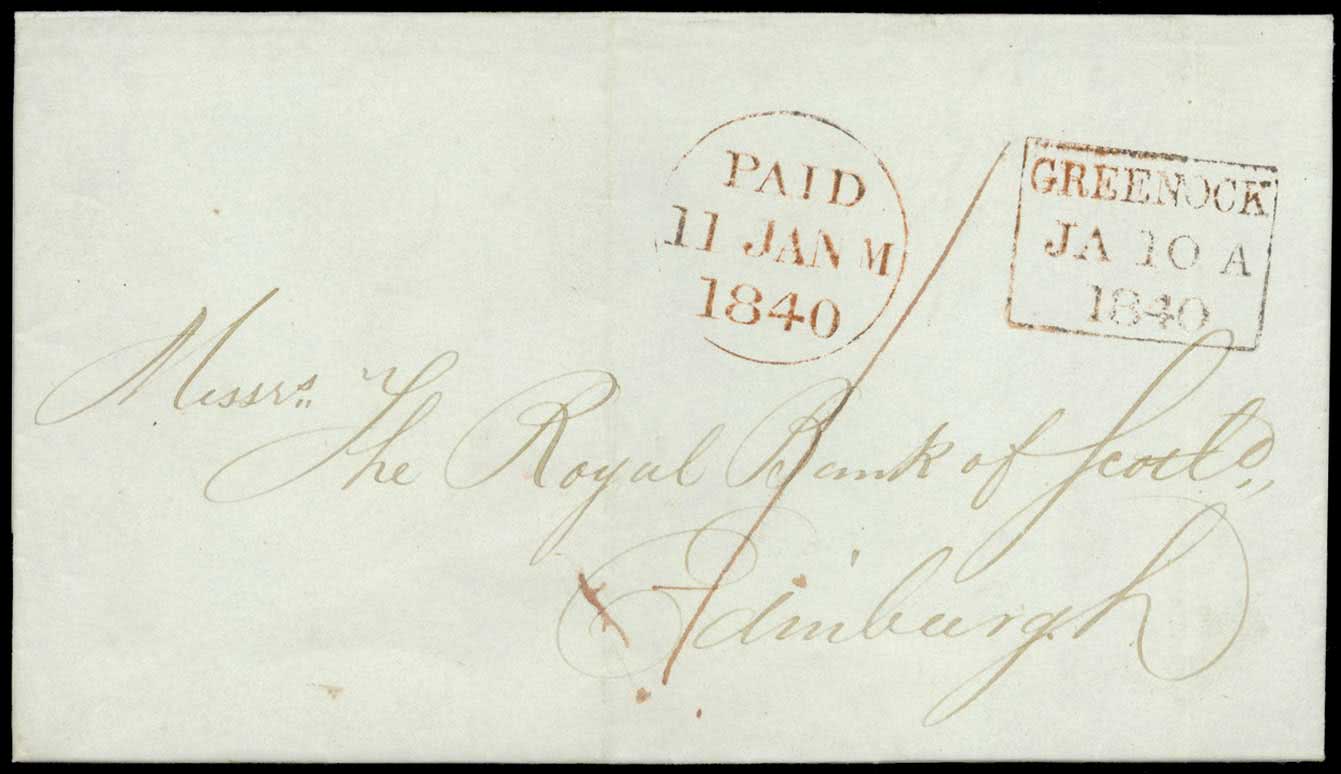 PAID
11 JAN M
1840
GREENOCK
JA 10 A
1840
Messrs
The Royal Bank of Scotd
Edinburgh
1